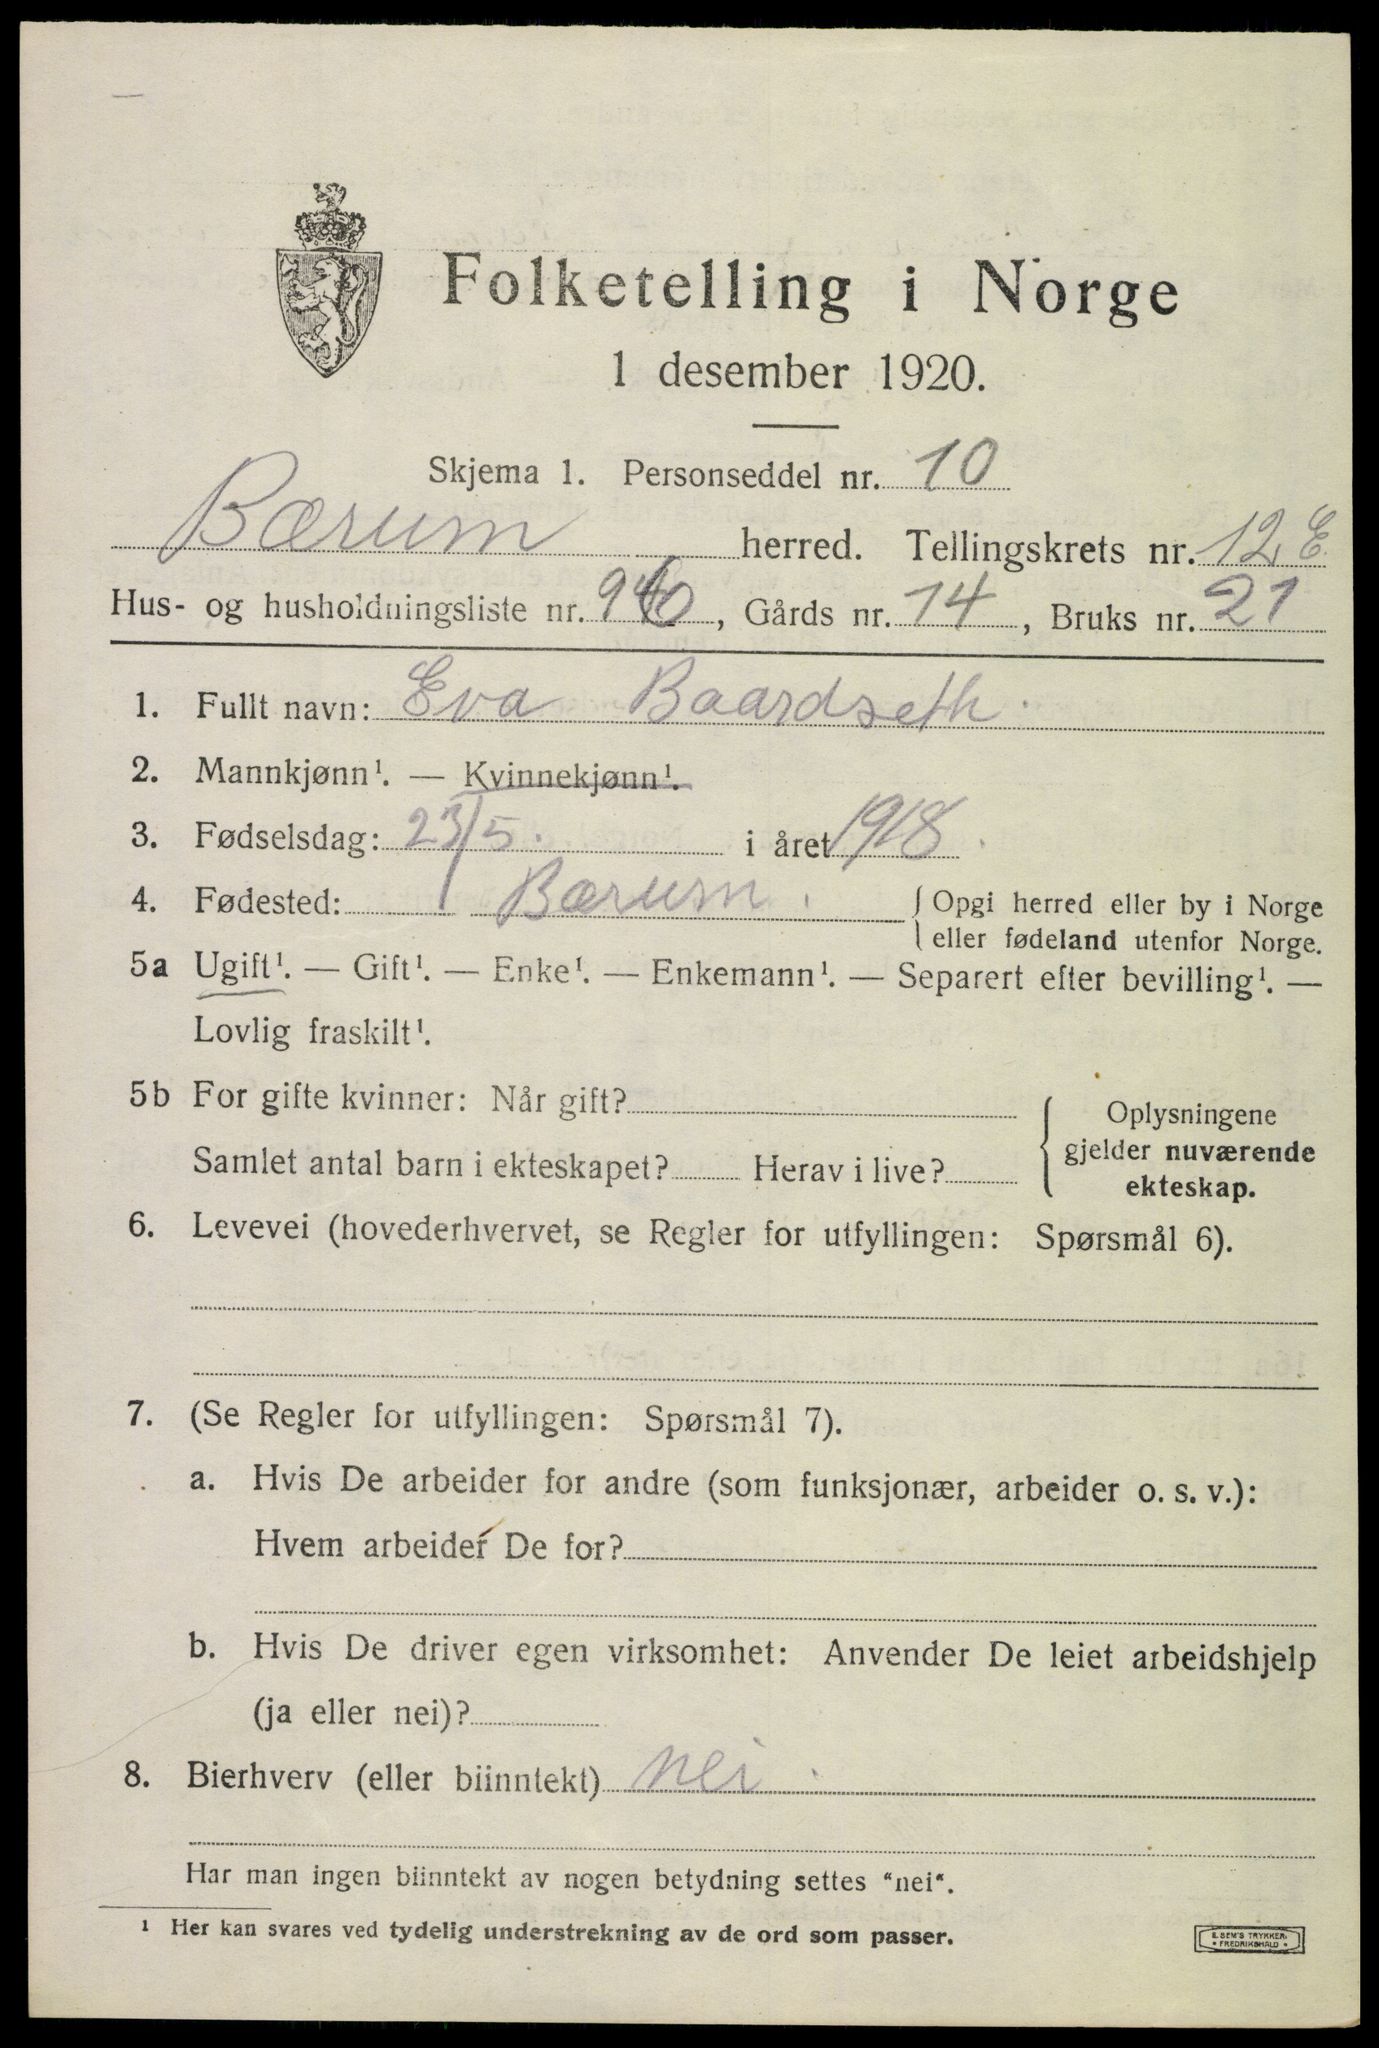 Folketelling i Norge
1 desember 1920.
Skjema 1. Personseddel nr. 10
Bærum herred. Tellingskrets nr. 12 E.
Hus- og husholdningsliste nr. , Gårds nr. 14, Bruks nr. 21
1. Fullt navn: Eva Baardseth.
2. Mannkjønn¹. — Kvinnekjønn¹.
3. Fødselsdag: 23/5. i året 1918.
4. Fødested: Bærum. { Opgi herred eller by i Norge
eller fødeland utenfor Norge.
5a Ugift¹. — Gift¹. — Enke¹. — Enkemann¹. — Separert efter bevilling¹. —
Lovlig fraskilt¹.
5b For gifte kvinner: Når gift?
Samlet antal barn i ekteskapet? Herav i live?
{ Oplysningene
gjelder nuværende
ekteskap.
6. Levevei (hovederhvervet, se Regler for utfyllingen: Spørsmål 6).
7. (Se Regler for utfyllingen: Spørsmål 7).
a. Hvis De arbeider for andre (som funksjonær, arbeider o. s. v.):
Hvem arbeider De for?
b. Hvis De driver egen virksomhet: Anvender De leiet arbeidshjelp
(ja eller nei)?
8. Bierhverv (eller biinntekt) nei.
Har man ingen biinntekt av nogen betydning settes "nei".
¹ Her kan svares ved tydelig understrekning av de ord som passer.
E. SEM'S TRYKKERI
• FREDRIKSHALD •